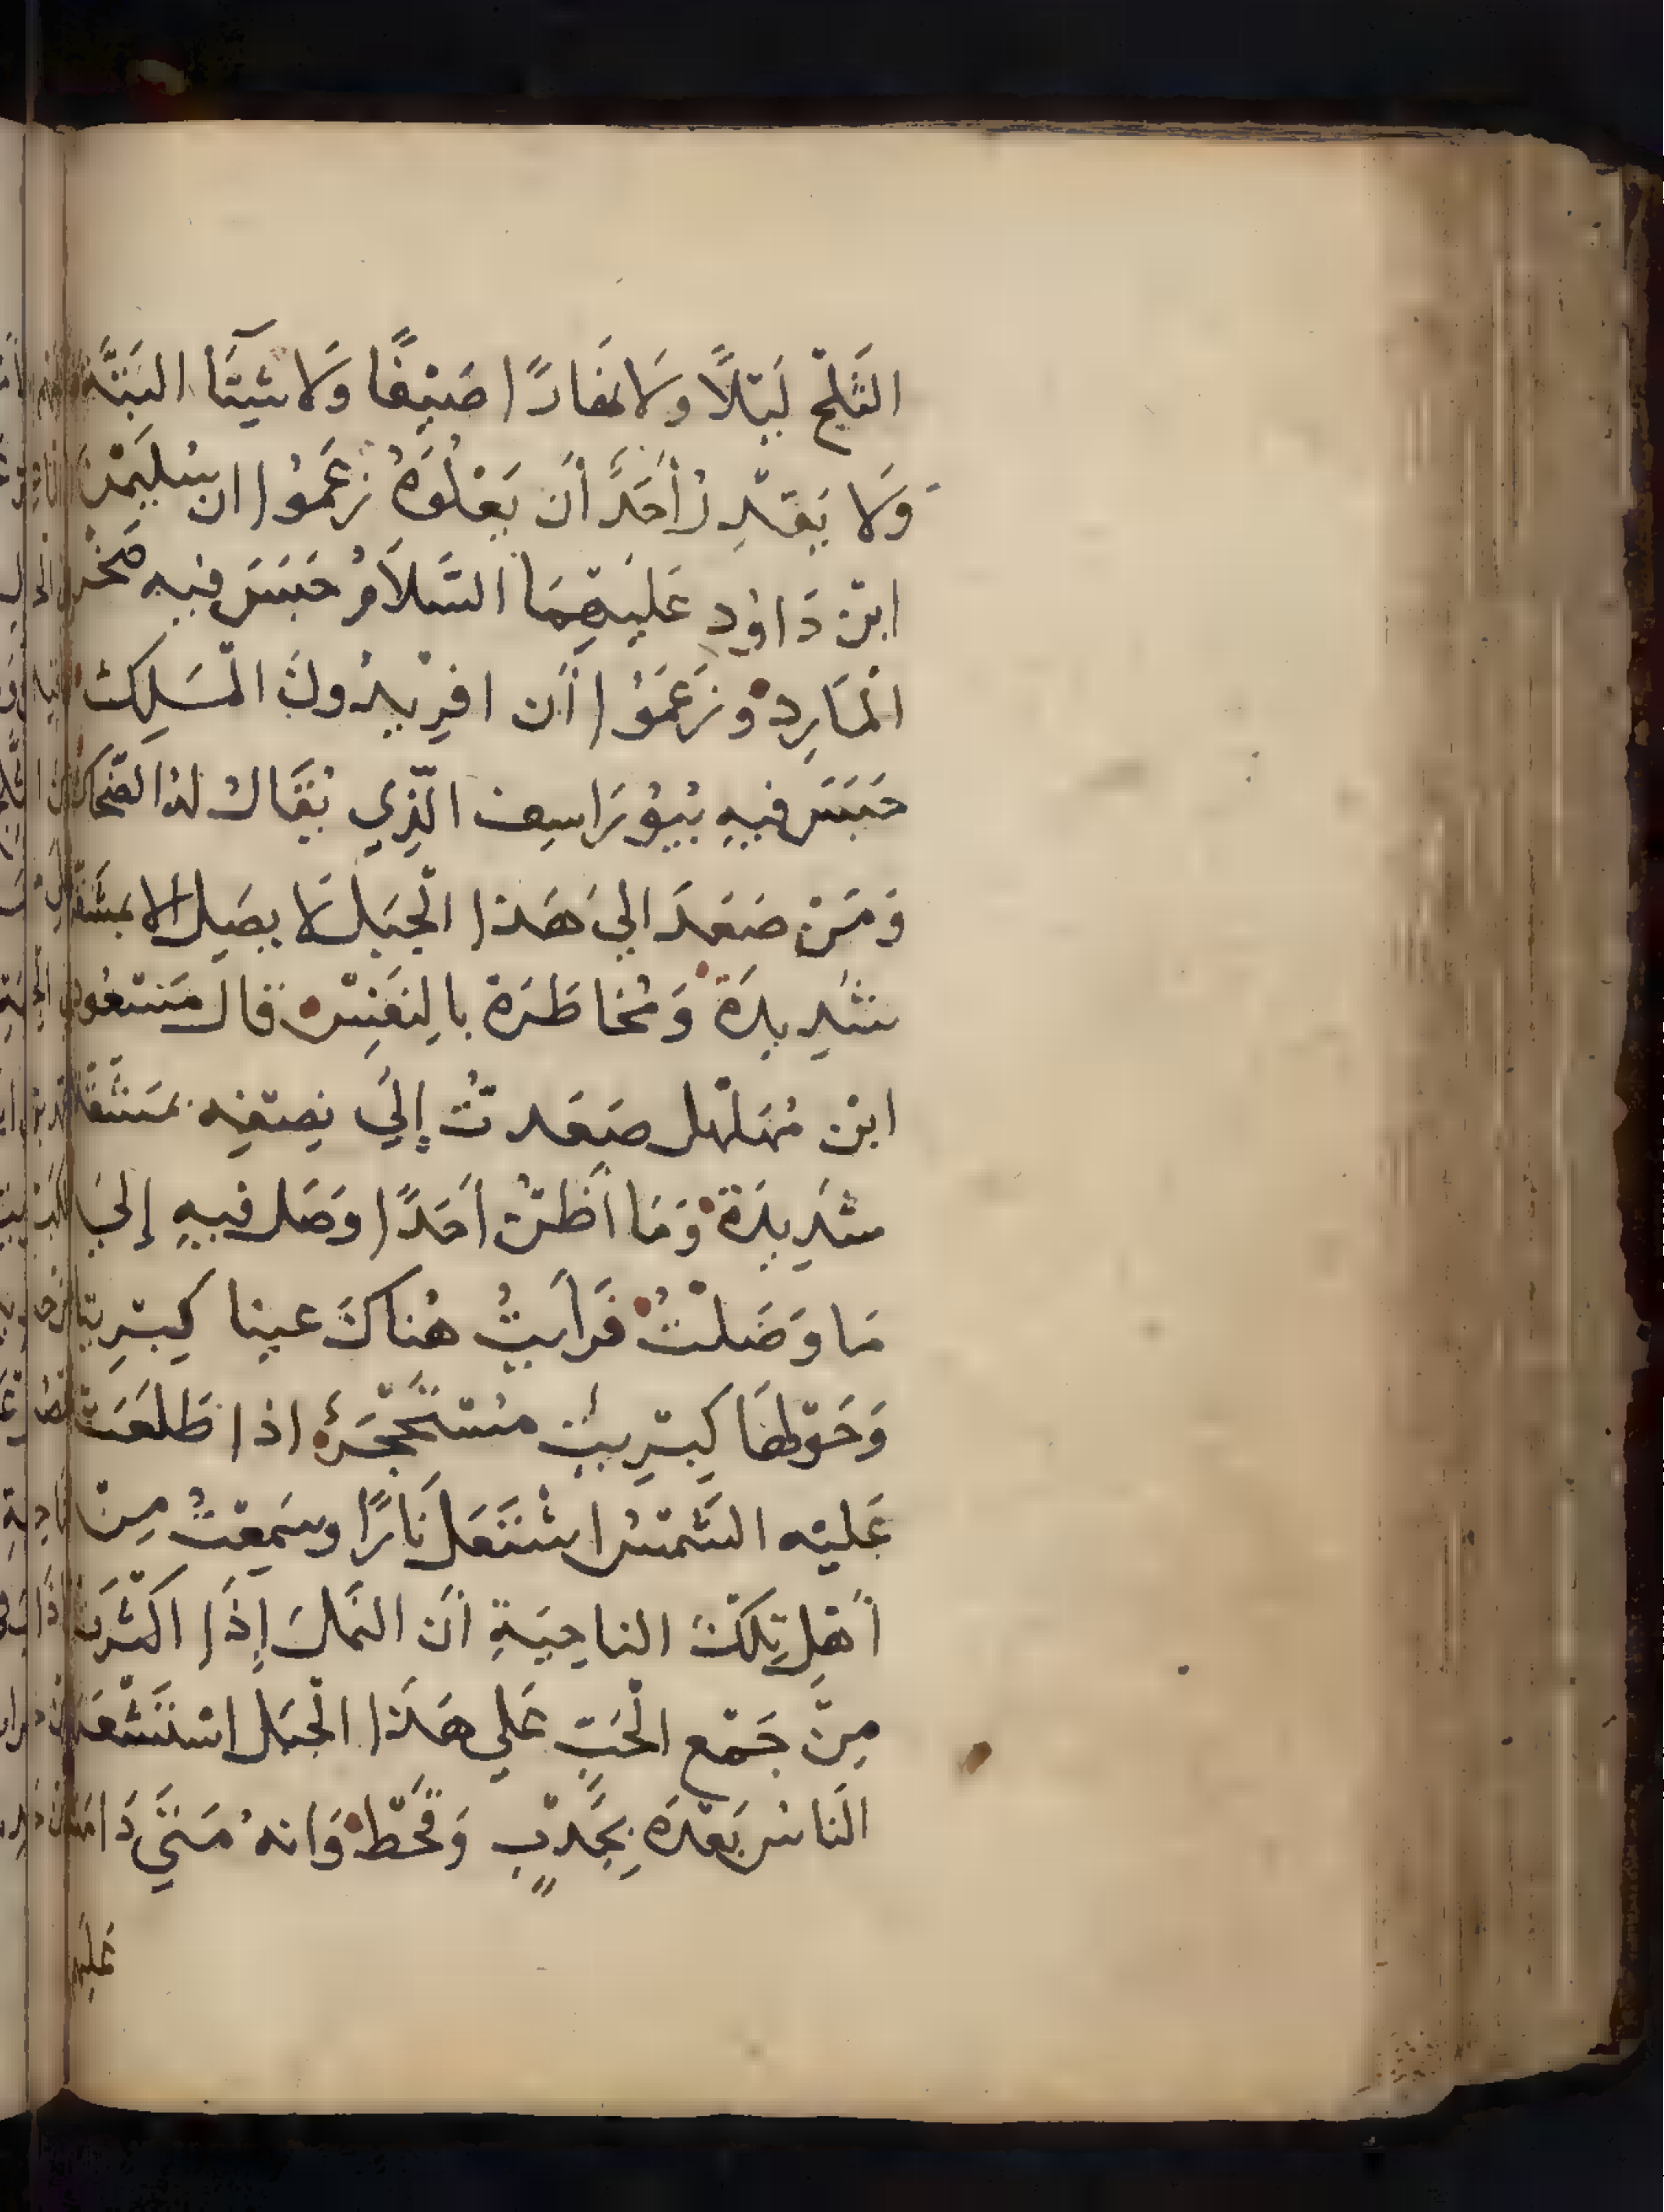 الثَلْج لَيْلًا وَلَا نَهَارًا صَيْفًا وَلَا شِيتَآءً البَتَّةَ
وَلَا يَقْدِرُ أَحَدٌ أَن يَعْلُوَهُ زَعَمُوا ان سُلَيْمٰنَ
ابْن دَاوُد عَلَيْهِمَا السَّلَامُ حَبَسَ فيه صَخْر
الْمَارِد وزَعَمُوا أَن افرِيْدُونَ الْمَلِكَ
حَبَسَ فِيهِ بُيُوْرَاسِف الَّذِي يُقَالُ لهُ الضَّحاك
وَمَنْ صَعَدَ اليَ هَذا الْجَبَل لَا يصَل الا بمشَقَّة
شَدِيدَة وَمُخاطَرَة بالنَفْسِ قال مَسْعُود
ابْن مُهَلْهل صَعَدتُ إِلَي نِصْفِه بمَشَقَّة
شَدِيدَة وَمَا أَظُنُّ أَحَدًا وَصَل فيهِ إِليَ
مَا وَصَلْتُ فَرَأَيتُ هُناكَ عينا كِبْرِيتا
وَحَوْلهَا كِبْرِيت مُسْتَحْجَرٌ اذا طَلعَت
عَليْه الشَّمْسُ اشْتَعَل نَارًا وسَمِعْتُ مِنْ
أَهْلِ تِلْكَ الناحِيَةِ أَن النَمل إِذَا اكْثَرَت
مِنْ جَمْع الْحَبِّ عَلي هَذَا الْجَبَل اسْتَشْعَرَ
النَاسُ بَعْدَه بِجَدْبٍ وَقَحْط وَانهُ مَتَي دَامَت
عَليْهِ